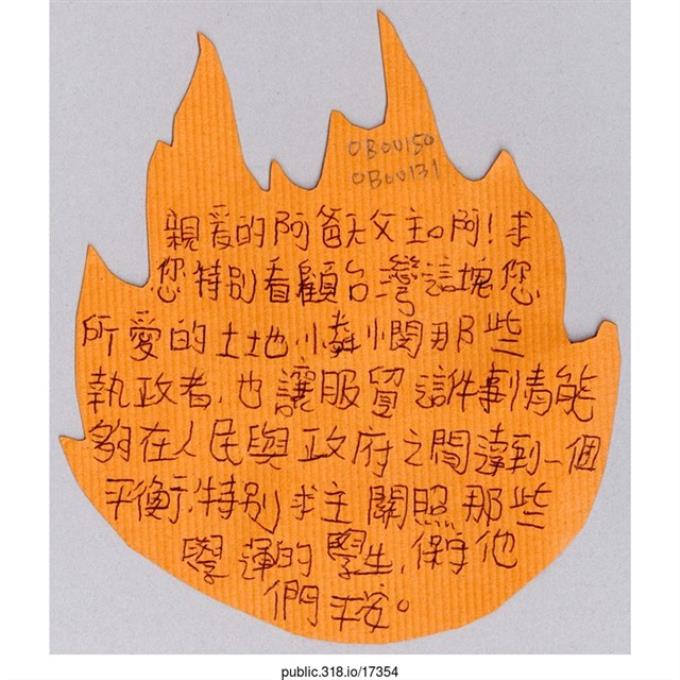 OBOU150
OBOU131
親爱的阿爸天父主啊!求
您特別看顧台灣這塊您
所愛的土地,憐憫那些
執政者,也讓服貿這件事情能
夠在人民與政府之間達到一個
平衡,特別求主關照那些
學運的學生,保守他
們平安。
public.318.io/17354